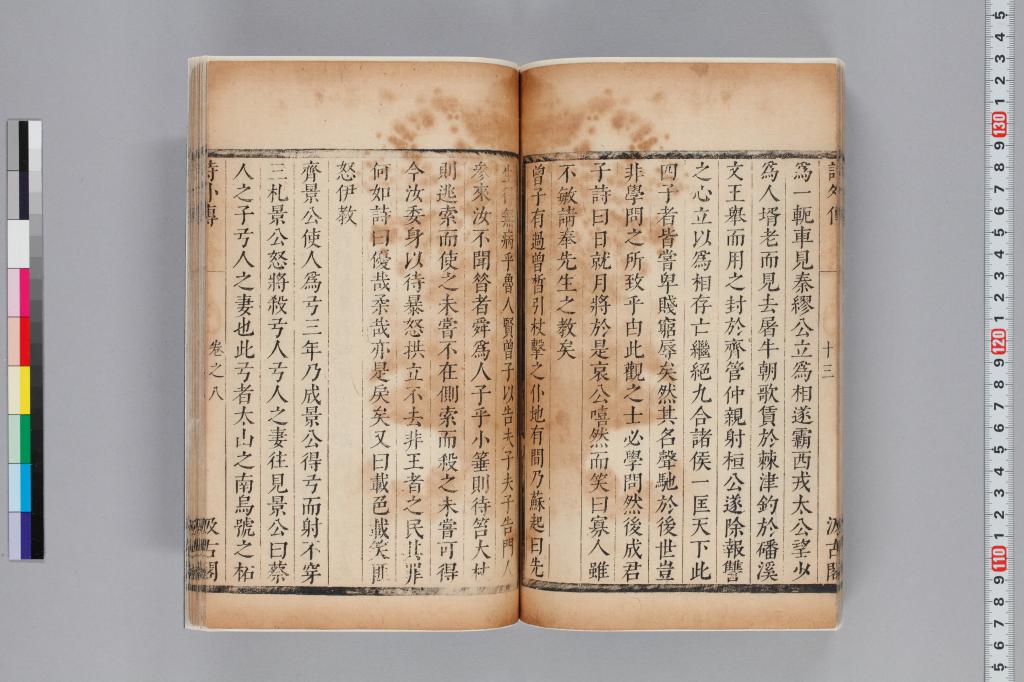 詩外傳
十三
汲古閣
爲一軛車見秦繆公立爲相遂霸西戎太公望少
爲人壻老而見去屠牛朝歌賃於棘津釣於磻溪
文王舉而用之封於齊管仲親射桓公遂除報讐
之心立以爲相存亡繼絕九合諸侯一匡天下此
四子者皆嘗卑賤窮辱矣然其名聲馳於後世豈
非學問之所致乎由此觀之士必學問然後成君
子詩曰日就月將於是哀公嘻然而笑曰寡人雖
不敏請奉先生之教矣
曾子有過曾晳引杖擊之仆地有間乃蘇起曰先
生得無病乎魯人賢曾子以告夫子夫子告門人
參來汝不聞昔者舜爲人子乎小箠則待笞大杖
則逃索而使之未嘗不在側索而殺之未嘗可得
今汝委身以待暴怒拱立不去非王者之民其罪
何如詩曰優哉柔哉亦是戾矣又曰載色載笑匪
怒伊教
齊景公使人爲弓三年乃成景公得弓而射不穿
三札景公怒將殺弓人弓人之妻往見景公曰蔡
人之子弓人之妻也此弓者太山之南烏號之柘
詩外傳
卷之八
汲古閣
5
4
3
2
1
130
9
8
7
6
5
4
3
2
1
120
9
8
7
6
5
4
3
2
1
110
9
8
7
6
5